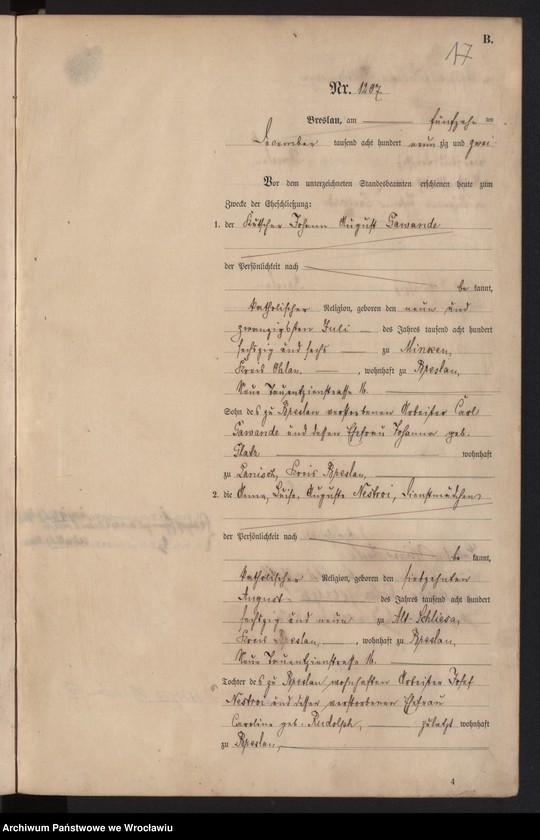 B.
17
Nr. 1297
Breslau, am fünfzehn ten
Dezember tausend acht hundert neun zig und zwei
Vor dem unterzeichneten Standesbeamten erschienen heute zum
Zwecke der Eheschließung:
1. der Kutscher Johann August Gawande
der Persönlichkeit nach
be kannt,
katholischer Religion, geboren den neun und
zwanzigsten Juli des Jahres tausend acht hundert
sechszig und sechs zu Minken,
Kreis Ohlau, wohnhaft zu Breslau,
Neue Tauentzienstrasse 16.
Sohn des zu Breslau verstorbenen Arbeiter Carl
Gawande und dessen Ehefrau Johanna geb.
Glatz wohnhaft
zu Lanisch, Kreis Breslau,
2. die Anna, Luise, Auguste Nestroi, Dienstmädchen
der Persönlichkeit nach
be kannt,
katholischer Religion, geboren den siebzehnten
August des Jahres tausend acht hundert
sechszig und neun zu Alt-Schliesa,
Kreis Breslau, wohnhaft zu Breslau,
Neue Tauentzienstrasse 16.
Tochter des zu Breslau wohnhaften Arbeiter Josef
Nestroi und dessen verstorbenen Ehefrau
Caroline geb. Rudolph, zuletzt wohnhaft
zu Breslau,
4
Archiwum Państwowe we Wrocławiu